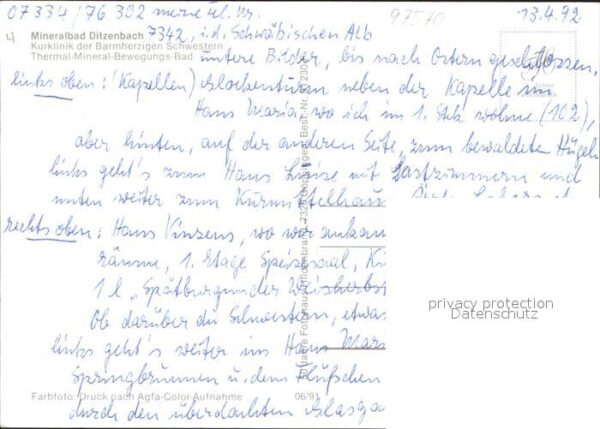 07334/76 302 meine Tel. Nr. 97570 13.4.92
Mineralbad Ditzenbach 7342, i.d. Schwäbischen Alb
Kurklinik der Barmherzigen Schwestern
Thermal-Mineral-Bewegungs-Bad
untere Bilder, bis nach Ostern geschlossen,
links oben: (Kapellen) Glockenturm neben der Kapelle im
Haus Maria, wo ich im 1. Stck wohne (102),
aber hinten, auf der anderen Seite, zum bewaldeten Hügel
links geht's zum Haus Luise mit Gastzimmern und
unten weiter zum Kurmittelhaus
rechts oben: Haus Vinzens, wo wir ankam
räume, 1. Etage Speisesaal,
1 l „Spätburgunder Weissherbst
Ob darüber die Schwestern, etwas
links geht's weiter ins Haus Mar
Springbrunnen u. dem Flüßchen
durch den überdachten Glasga
Farbfoto: Druck nach Agfa-Color-Aufnahme 06/91
privacy protection
Datenschutz